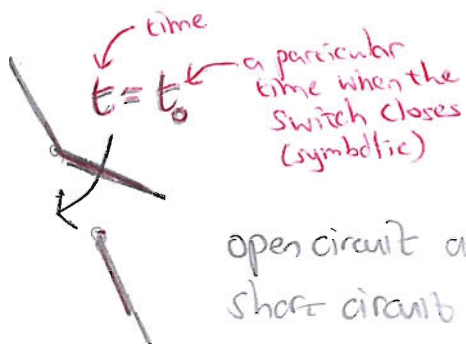 time
t = t₀
a particular
time when the
switch closes
(symbolic)
open circuit a
short circuit